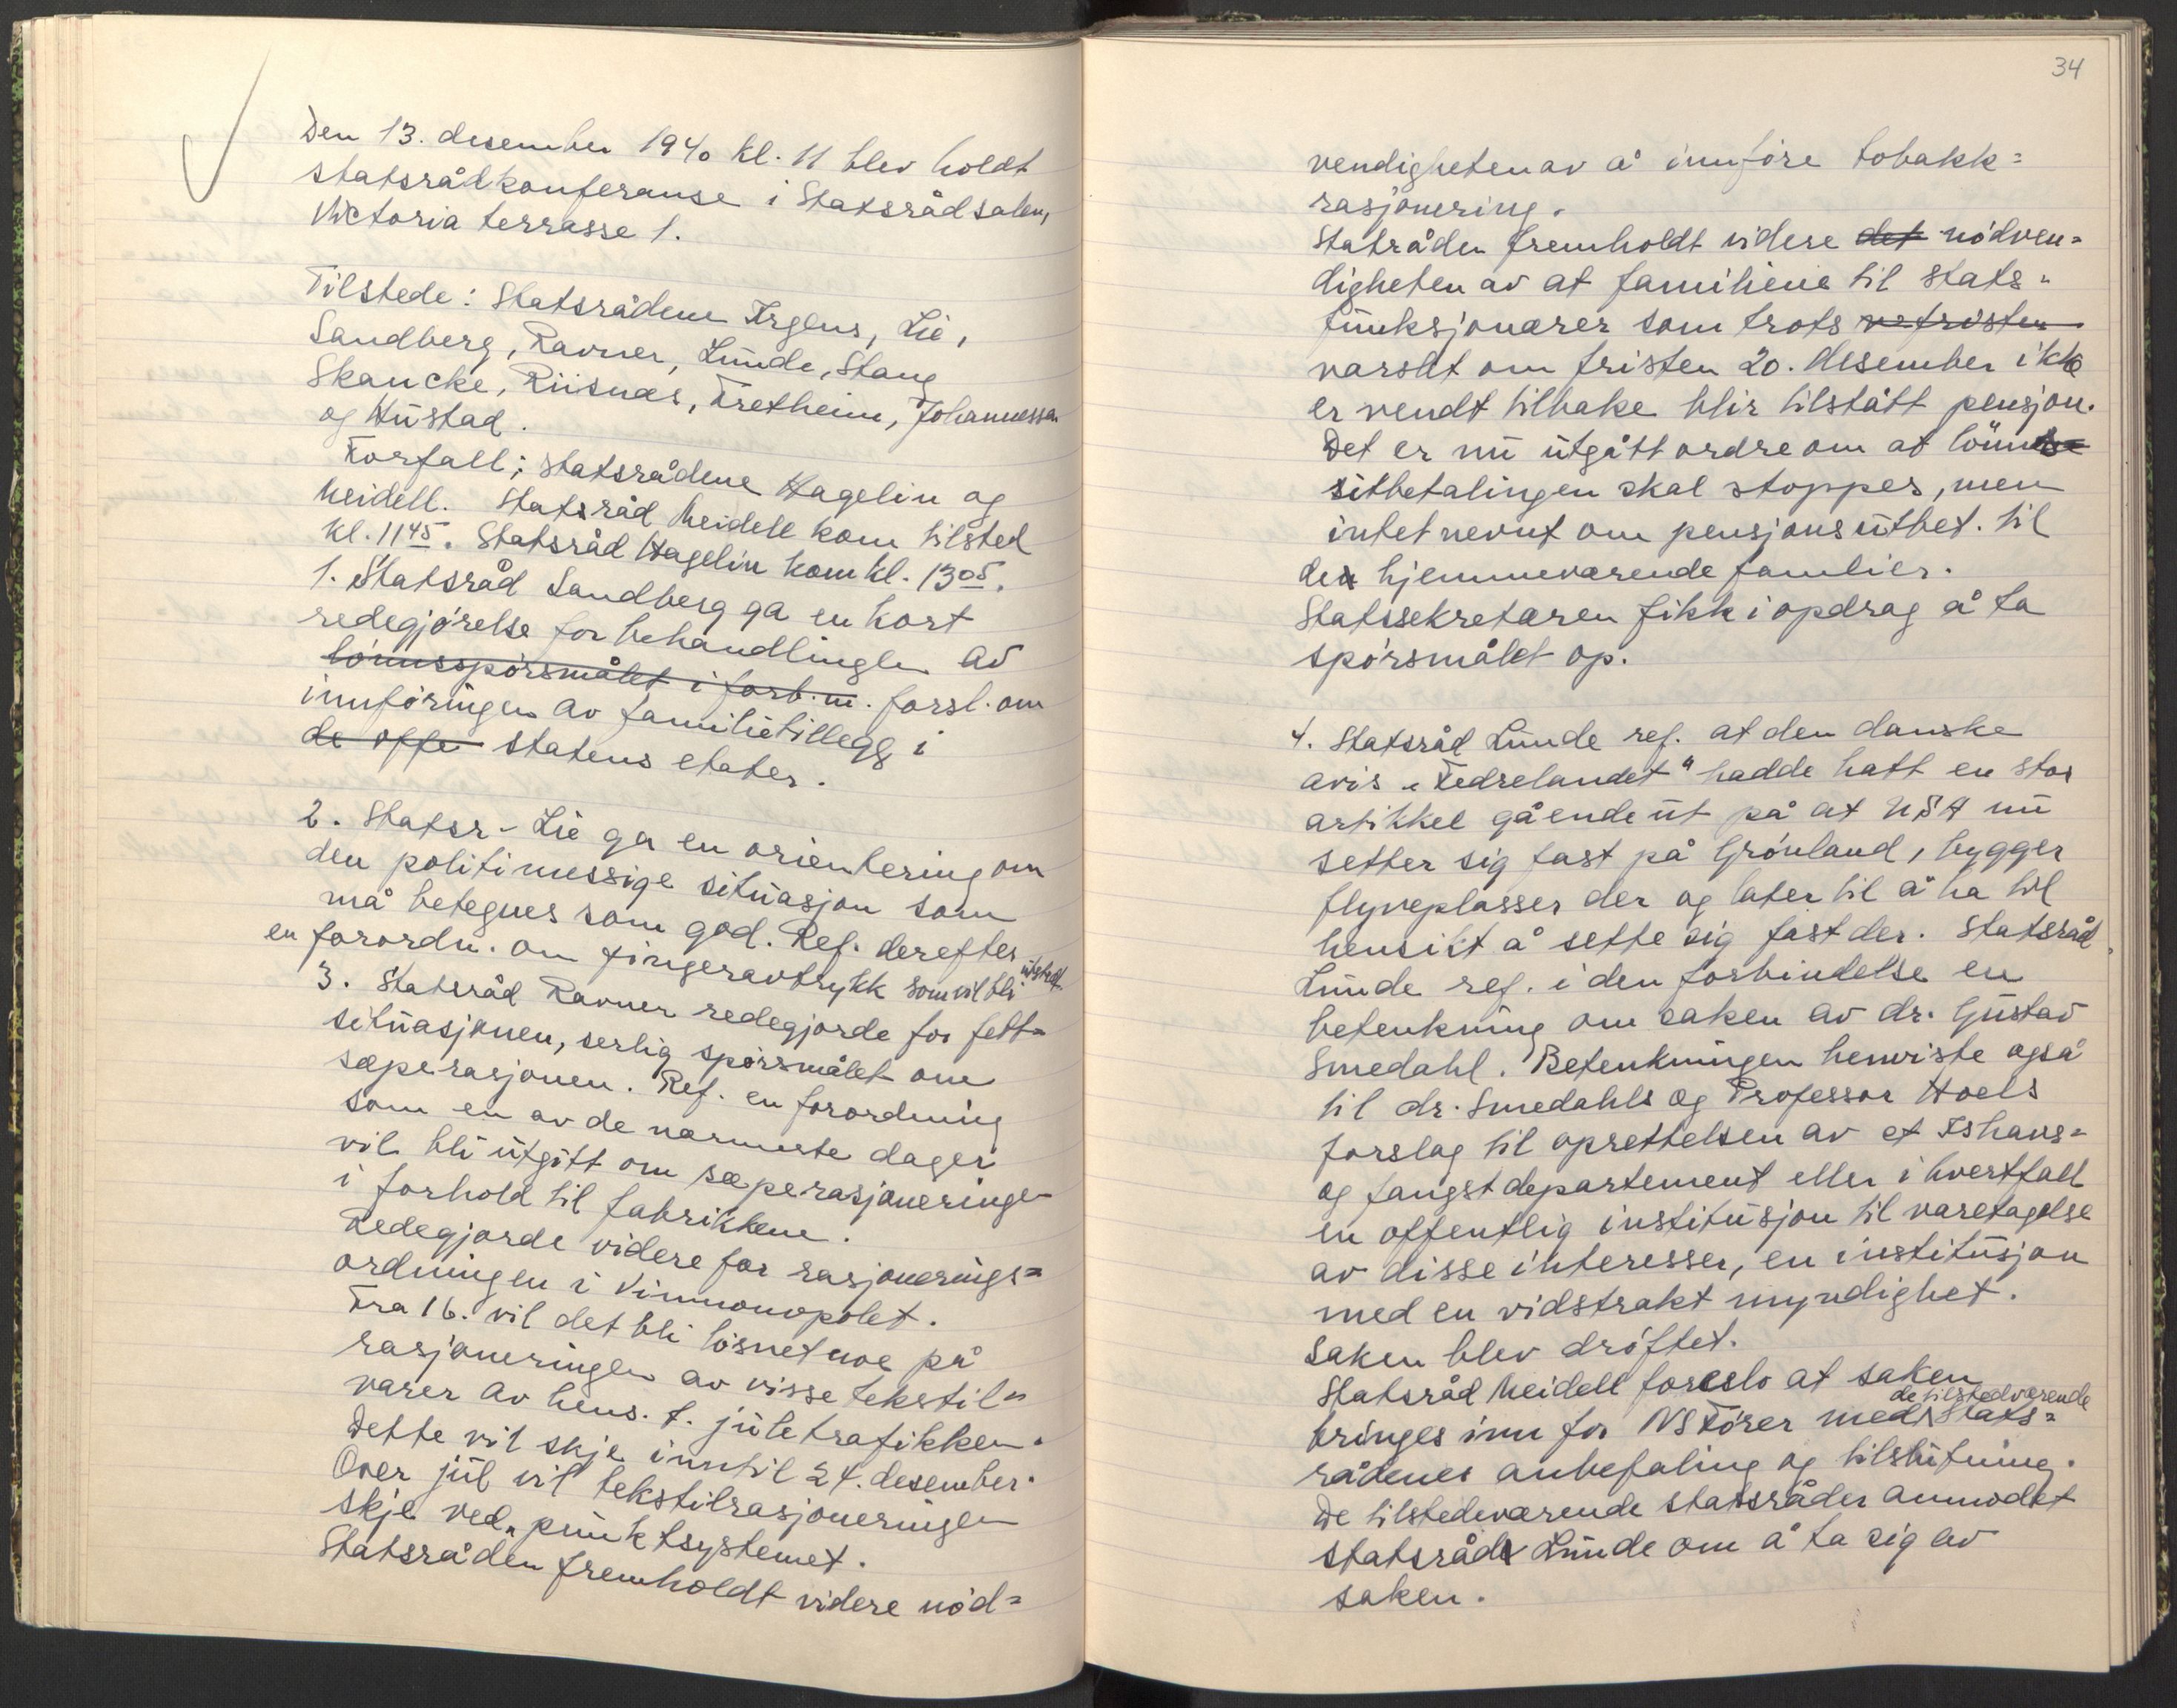 Den 13. desember 1940 kl. 11 blev holdt
statsrådkonferanse i Statsrådsalen,
Victoria terrasse 1.
Tilstede: Statsrådene Irgens, Lie,
Sandberg, Ravner, Lunde, Stang
Skancke, Riisnæs, Fretheim, Johannessen
og Hustad.
Forfall; statsrådene Hagelin og
Meidell. Statsråd Meidell kom tilsted
kl. 11 45. Statsråd Hagelin kom kl. 13 05.
1. Statsråd Sandberg ga en kort
redegjørelse for behandlingen av
lønnsspørsmålet i forb. m. forsl. om
innføringen av familietillegg i
de offe statens etater.
2. Statsr. Lie ga en orientering om
den politimessige situasjon som
må betegnes som god. Ref. derefter
en forordn. om fingeravtrykk som vil bli utstedt
3. Statsråd Ravner redegjorde for fett=
situasjonen, serlig spørsmålet om
sæperasjonen. Ref. en forordning
som en av de nærmeste dager
vil bli utgitt om sæperasjoneringen
i forhold til fabrikkene.
Redegjorde videre for rasjonerings=
ordningen i Vinmonopolet.
Fra 16. vil det bli løsnet noe på
rasjoneringen av visse tekstil=
varer av hens. t. juletrafikken.
Dette vil skje inntil 24. desember.
Over jul vil tekstilrasjoneringen
skje ved punktsystemet.
Statsråden fremholdt videre nød=
34
vendigheten av å innføre tobakk=
rasjonering.
Statråden fremholdt videre det nødven=
digheten av at familiene til stats=
funksjonærer som trots ve fristen
varslet om fristen 20. desember ikke
er vendt tilbake blir tilstått pensjon.
Det er nu utgått ordre om at lønns
utbetalingen skal stoppes, men
intet nevnt om pensjonsutbet. til
de hjemmeværende familier.
Statssekretæren fikk i opdrag å ta
spørsmålet op.
4. Statsråd Lunde ref. at den danske
avis „Fedrelandet“ hadde hatt en stor
artikkel gående ut på at USA nu
setter sig fast på Grønland, bygger
flyveplasser der og later til å ha til
hensikt å sette sig fast der. Statsråd
Lunde ref. i den forbindelse en
betenkning om saken av dr. Gustav
Smedahl. Betenkningen henviste også
til dr. Smedahls og Professor Hoels
forslag til oprettelsen av et Ishavs=
og fangstdepartement eller i hvertfall
en offentlig institusjon til varetagelse
av disse interesser, en institusjon
med en vidstrakt myndighet.
Saken blev drøftet.
Statsråd Meidell foreslo at saken
de tilstedværende
bringes inn for NS Fører med stats=
rådenes anbefaling og tilslutning.
De tilstedeværende statsråder anmodet
statsråd Lunde om å ta sig av
saken.